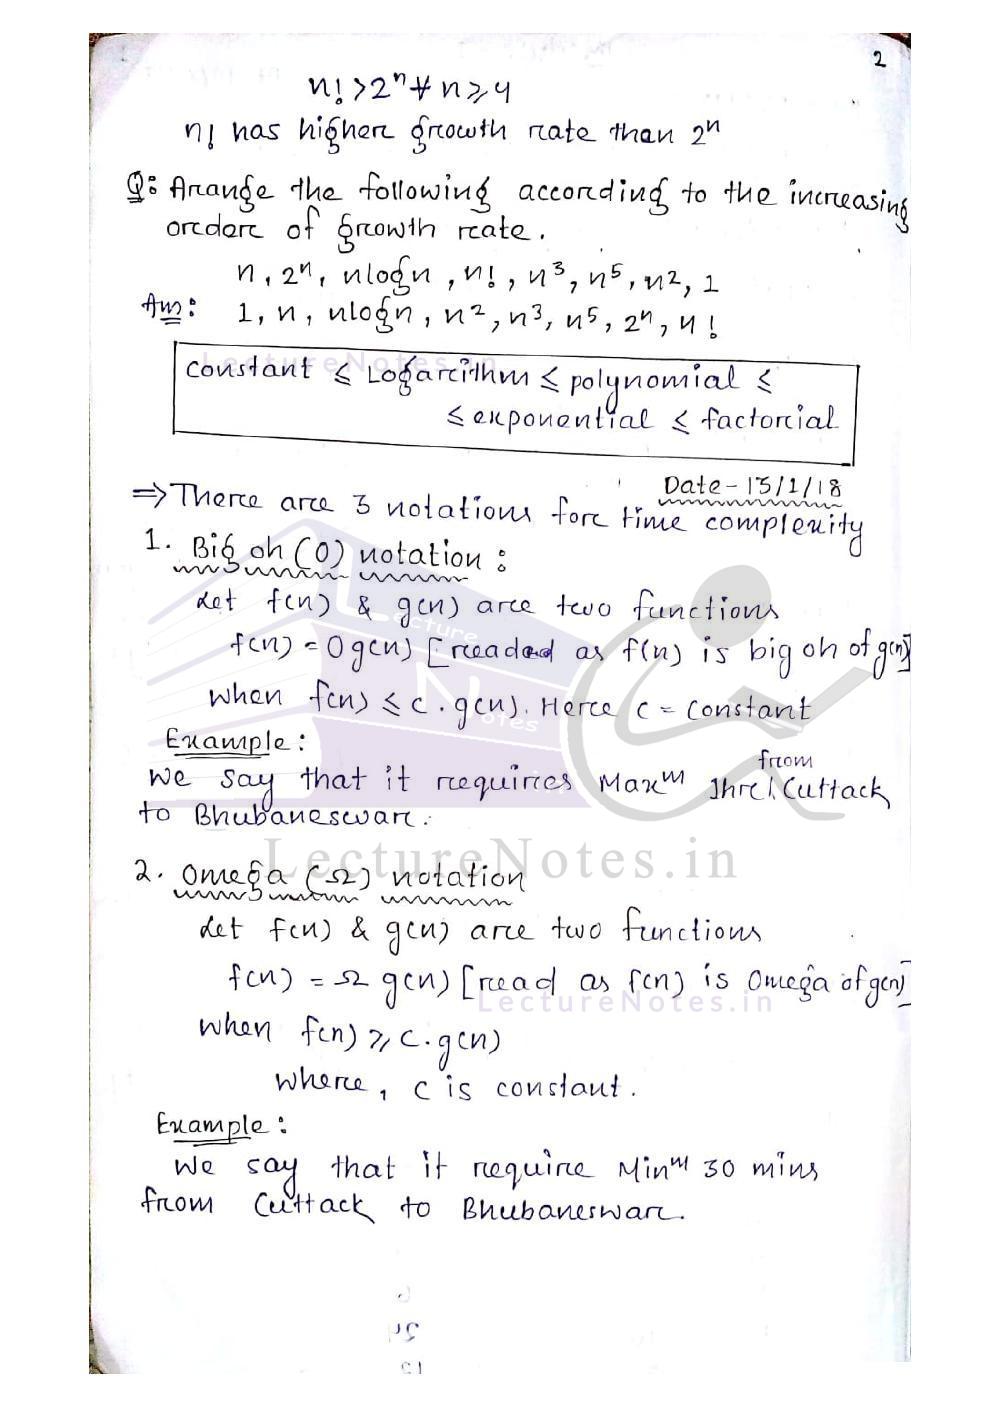 2
n! > 2ⁿ ∀ n ⩾ 4
n! has higher growth rate than 2ⁿ
Q: Arange the following according to the increasing
order of growth rate.
n, 2ⁿ, nlogn, n!, n³, n⁵, n², 1
Ans: 1, n, nlogn, n², n³, n⁵, 2ⁿ, n!
LectureNotes.in
constant ⩽ Logarithm ⩽ polynomial ⩽
⩽ exponential ⩽ factorial
Date - 15/1/18
⇒ There are 3 notations for time complexity
1. Big oh (O) notation :
Let f(n) & g(n) are two functions
f(n) = O g(n) [readed as f(n) is big oh of g(n)]
when f(n) ⩽ c . g(n). Here c = constant
Lecture Notes
Example :
We say that it requires Maxᵐ 1hr from Cuttack
to Bhubaneswar.
LectureNotes.in
2. Omega (Ω) notation
Let f(n) & g(n) are two functions
f(n) = Ω g(n) [read as f(n) is Omega of g(n)]
LectureNotes.in
when f(n) ⩾ c . g(n)
where, c is constant.
Example :
We say that it require Minᵐ 30 mins
from Cuttack to Bhubaneswar.